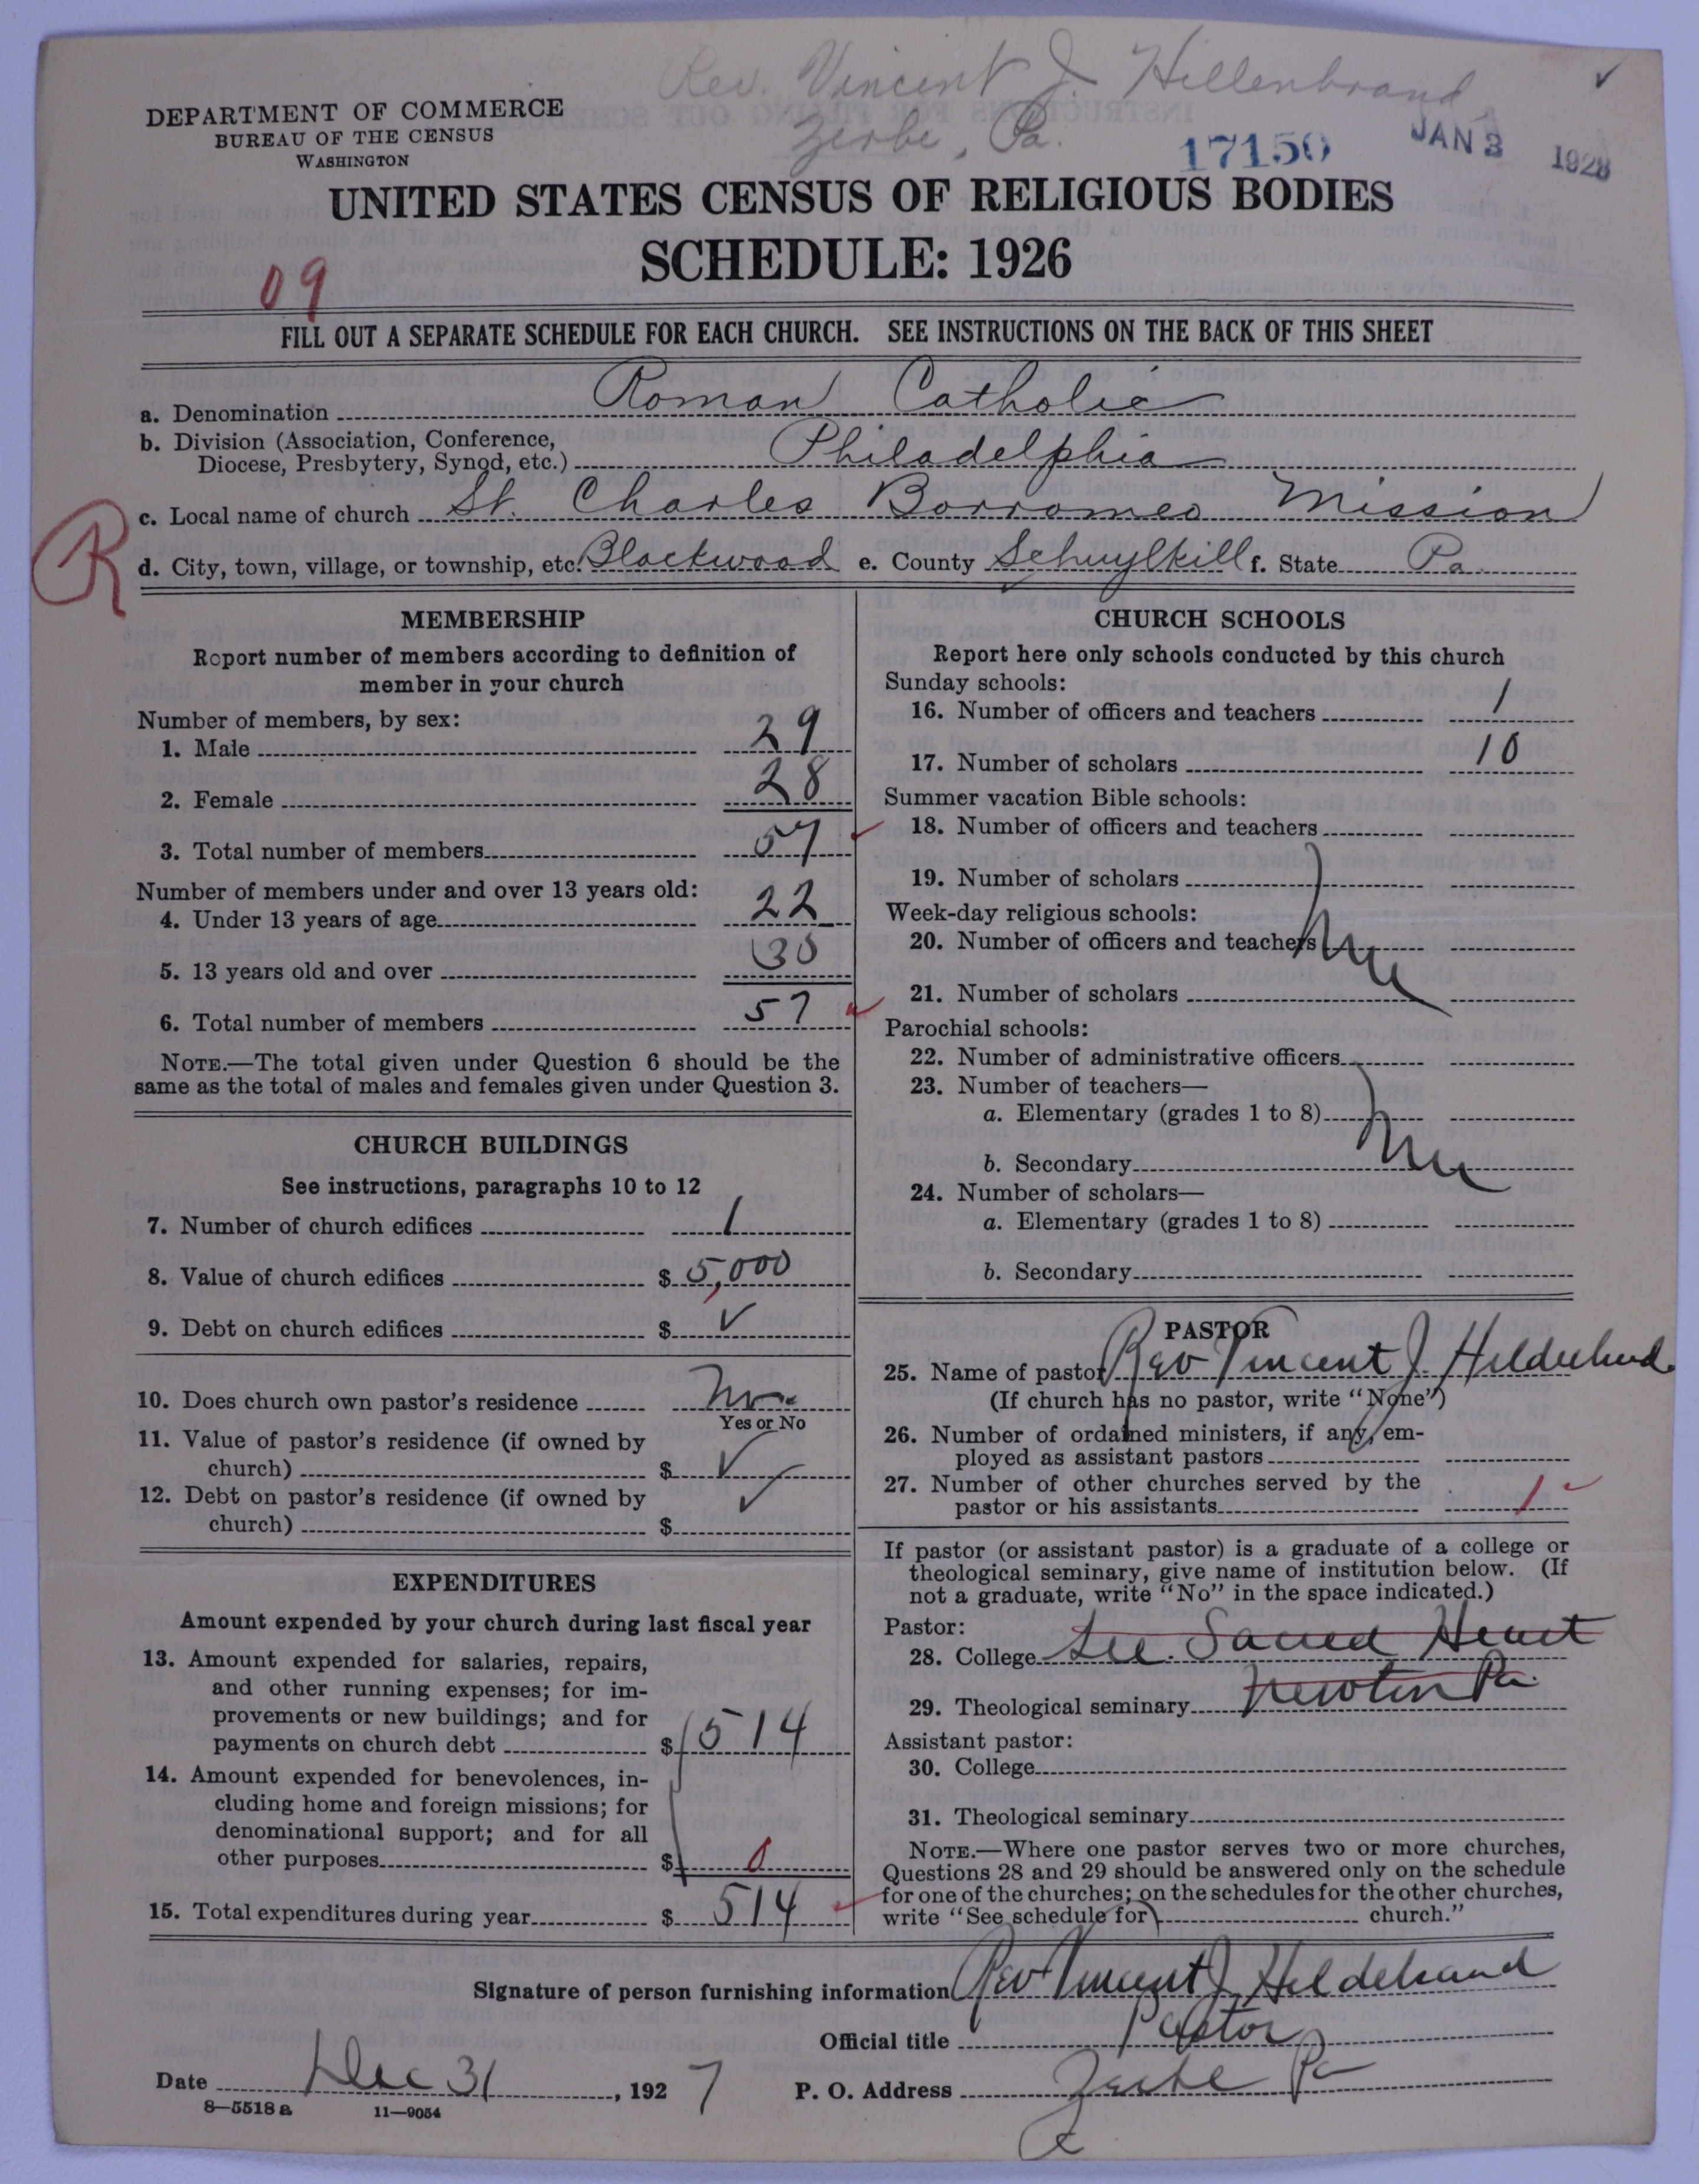 Rev. Vincent J. Hillenbrand
Zerbe, Pa.
DEPARTMENT OF COMMERCE
BUREAU OF THE CENSUS
WASHINGTON
17150
JAN 3 1928
UNITED STATES CENSUS OF RELIGIOUS BODIES
SCHEDULE: 1926
09
FILL OUT A SEPARATE SCHEDULE FOR EACH CHURCH. SEE INSTRUCTIONS ON THE BACK OF THIS SHEET
a. Denomination Roman Catholic
b. Division (Association, Conference,
Diocese, Presbytery, Synod, etc.) Philadelphia
c. Local name of church St. Charles Borromeo Mission
R
d. City, town, village, or township, etc. Blackwood e. County Schuylkill f. State Pa.
MEMBERSHIP
Report number of members according to definition of
member in your church
Number of members, by sex:
1. Male 29
2. Female 28
3. Total number of members 57
Number of members under and over 13 years old:
4. Under 13 years of age 22
5. 13 years old and over 35
6. Total number of members 57
NOTE.—The total given under Question 6 should be the
same as the total of males and females given under Question 3.
CHURCH BUILDINGS
See instructions, paragraphs 10 to 12
7. Number of church edifices 1
8. Value of church edifices $ 5,000
9. Debt on church edifices $ ✓
10. Does church own pastor's residence no
Yes or No
11. Value of pastor's residence (if owned by
church) $ ✓
12. Debt on pastor's residence (if owned by
church) $ ✓
EXPENDITURES
Amount expended by your church during last fiscal year
13. Amount expended for salaries, repairs,
and other running expenses; for im-
provements or new buildings; and for
payments on church debt $ 514
14. Amount expended for benevolences, in-
cluding home and foreign missions; for
denominational support; and for all
other purposes $ 0
15. Total expenditures during year $ 514
CHURCH SCHOOLS
Report here only schools conducted by this church
Sunday schools:
16. Number of officers and teachers 1
17. Number of scholars 10
Summer vacation Bible schools:
18. Number of officers and teachers
19. Number of scholars
Week-day religious schools:
20. Number of officers and teachers
21. Number of scholars
Parochial schools:
22. Number of administrative officers
23. Number of teachers—
a. Elementary (grades 1 to 8)
b. Secondary
24. Number of scholars—
a. Elementary (grades 1 to 8)
b. Secondary
PASTOR
25. Name of pastor Rev Vincent J. Hildebrand
(If church has no pastor, write "None")
26. Number of ordained ministers, if any, em-
ployed as assistant pastors
27. Number of other churches served by the
pastor or his assistants 1
If pastor (or assistant pastor) is a graduate of a college or
theological seminary, give name of institution below. (If
not a graduate, write "No" in the space indicated.)
Pastor:
28. College See. Sacred Heart
29. Theological seminary Newton Pa
Assistant pastor:
30. College
31. Theological seminary
NOTE.—Where one pastor serves two or more churches,
Questions 28 and 29 should be answered only on the schedule
for one of the churches; on the schedules for the other churches,
write "See schedule for church."
Signature of person furnishing information Rev Vincent J. Hildebrand
Official title Pastor
Date Dec 31, 1927 P. O. Address Zerbe Pa
8—5518 a 11—9054